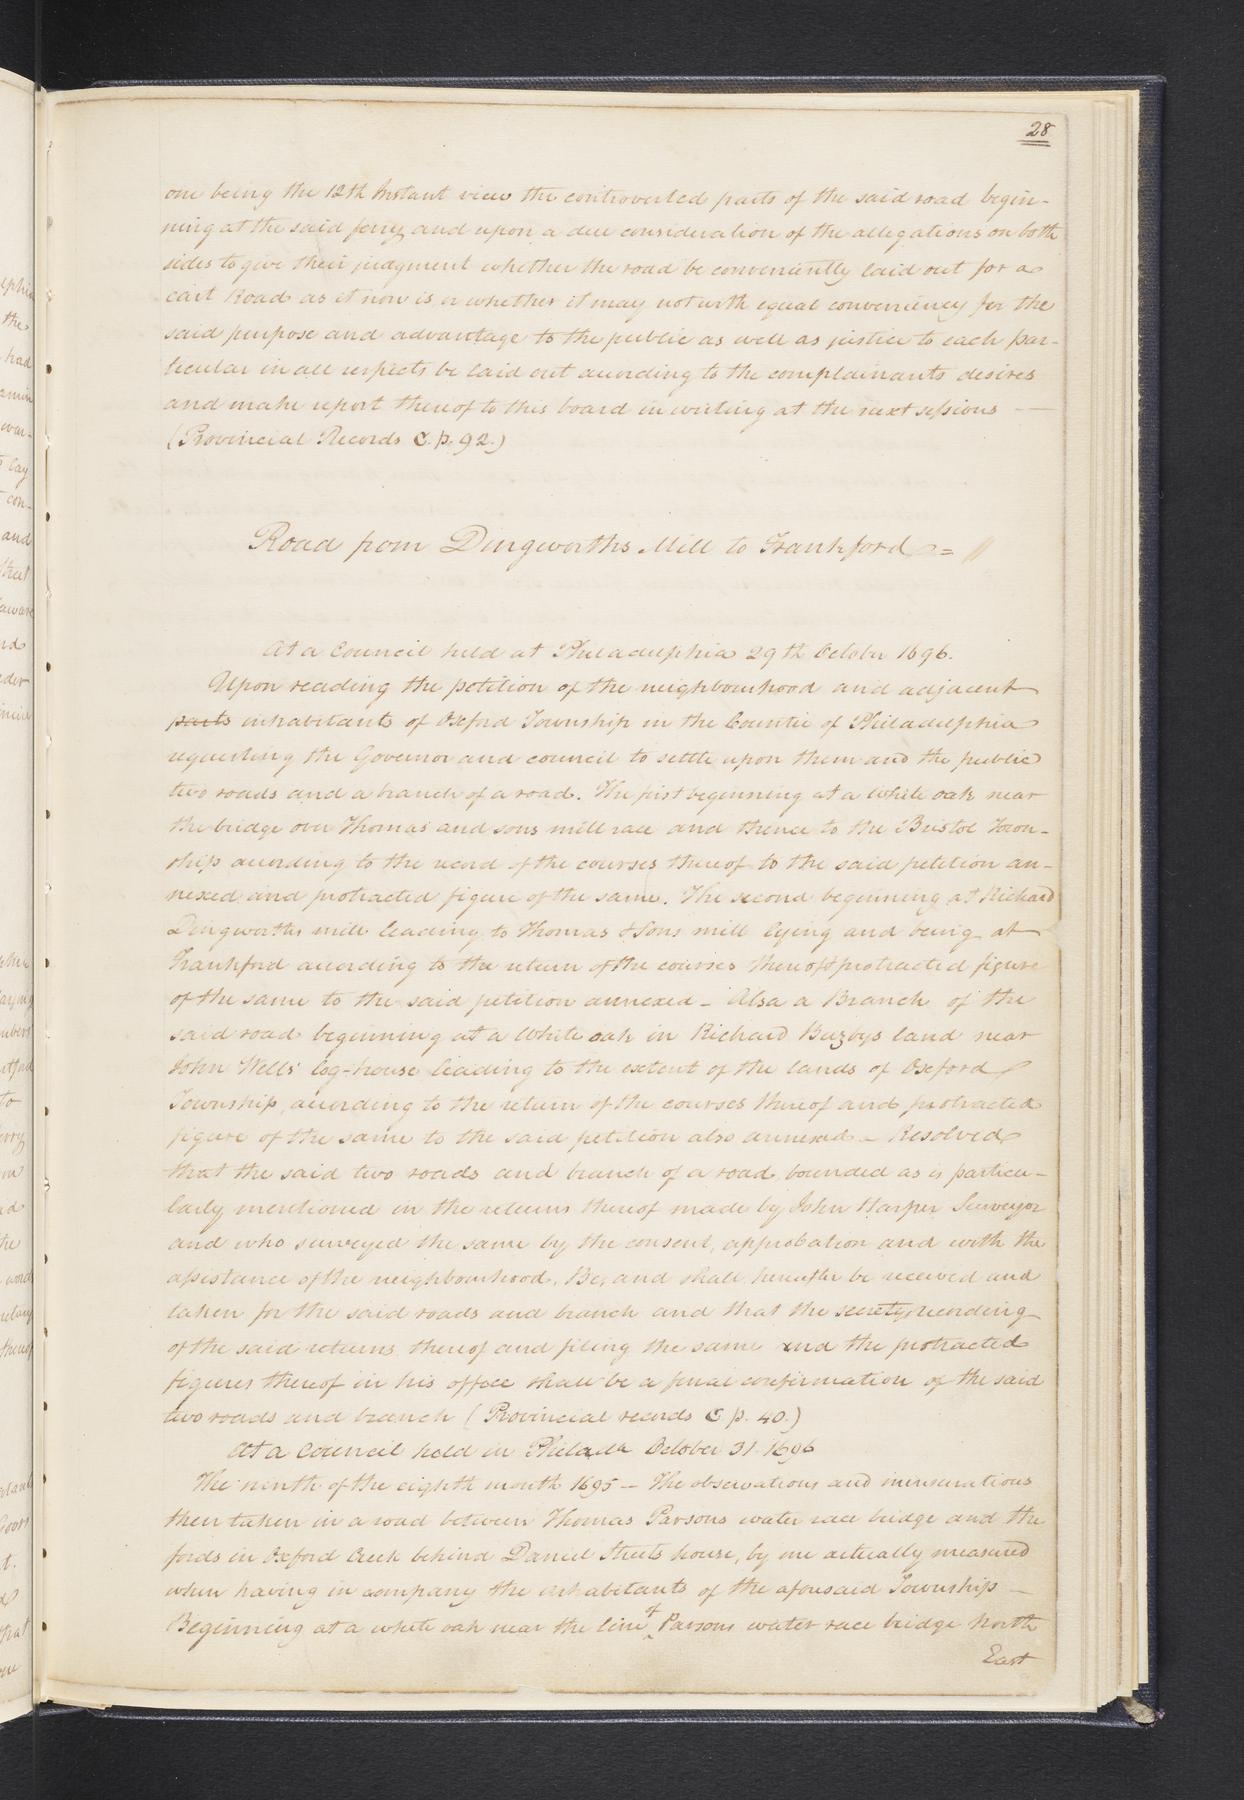 28
one being the 12th Instant view the controverted parts of the said road begin-
ning at the said ferry and upon a due consideration of the allegations on both
sides to give their judgment whether the road be conveniently laid out for a
cart Road as it now is or whether it may not with equal conveniency for the
said purpose and advantage to the public as well as justice to each par-
ticular in all respects be laid out according to the complainants desires
and make report thereof to this board in writing at the next sessions —
(Provincial Records C. p. 92.)
Road from Dingworths Mill to Frankford = //
At a Council held at Philadelphia 29th October 1696.
Upon reading the petition of the neighbourhood and adjacent
parts inhabitants of Oxford Township in the Countie of Philadelphia
requesting the Governor and council to settle upon them and the public
two roads and a branch of a road. The first beginning at a White oak near
the bridge over Thomas and sons mill race and thence to the Bristol Town-
ship according to the record of the courses thereof to the said petition an-
nexed and protracted figure of the same. The second beginning at Richard
Dingworths mill leading to Thomas & Sons mill lying and being at
Frankford according to the return of the courses thereof & protracted figure
of the same to the said petition annexed - Also a Branch of the
said road beginning at a White oak in Richard Buzbys land near
John Wells' log-house leading to the extent of the lands of Oxford
Township, according to the return of the courses thereof and protracted
figure of the same to the said petition also annexed - Resolved
that the said two roads and branch of a road, bounded as is particu-
larly mentioned in the returns thereof made by John Harper Surveyor
and who surveyed the same by the consent, approbation and with the
assistance of the neighbourhood, Be, and shall hereafter be received and
taken for the said roads and branch and that the secretys recording
of the said returns thereof and filing the same and the protracted
figures thereof in his office shall be a final confirmation of the said
two roads and branch (Provincial records C p. 40.)
At a Council held in Philada October 31. 1696
The ninth of the eighth month 1695 — The observations and mensurations
then taken in a road between Thomas Parsons water race bridge and the
fords in Oxford Creek behind Daniel Streets house, by me actually measured
when having in company the inhabitants of the aforesaid Township —
Beginning at a white oak near the line of Parsons water race bridge North
East